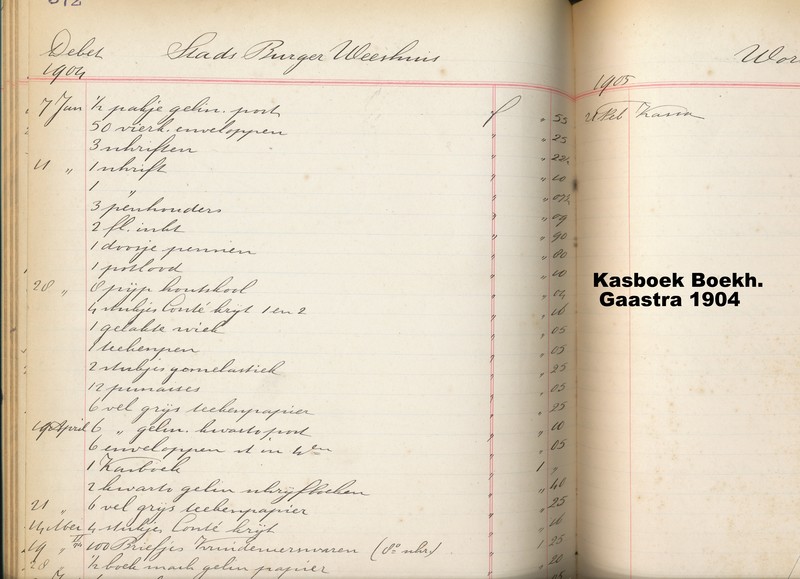 Debet Stads Burger Weeshuis
1904
7 Jan ½ pakje gelin. post f " 55
50 vierk. enveloppen " " 25
3 schriften " " 22½
21 " 1 schrift " " 10
1 " " " 07½
3 penhouders " " 09
2 fl. inkt " " 90
1 doosje pennen " " 80
1 potlood " " 10
28 " 8 pijp houtskool " " 04
4 stukjes Conté krijt 1 en 2 " " 16
1 gelakte " " 05
1 teekenpen " " 05
2 stukjes gomelastiek " " 25
12 punaises " " 05
6 vel grijs teekenpapier " " 25
April 6 " gelin. kwarto post " " 10
6 enveloppen in " " 05
1 Kasboek " 1 "
2 kwarto gelin schrijfboeken " " 40
21 " 6 vel grijs teekenpapier " " 25
14 4 stukjes Conté krijt " " 16
19 " 100 Briefjes Kruidenierswaren " 1 25
28 ½ boek gelin papier " " 20
1905
Kassa
Kasboek Boekh.
Gaastra 1904